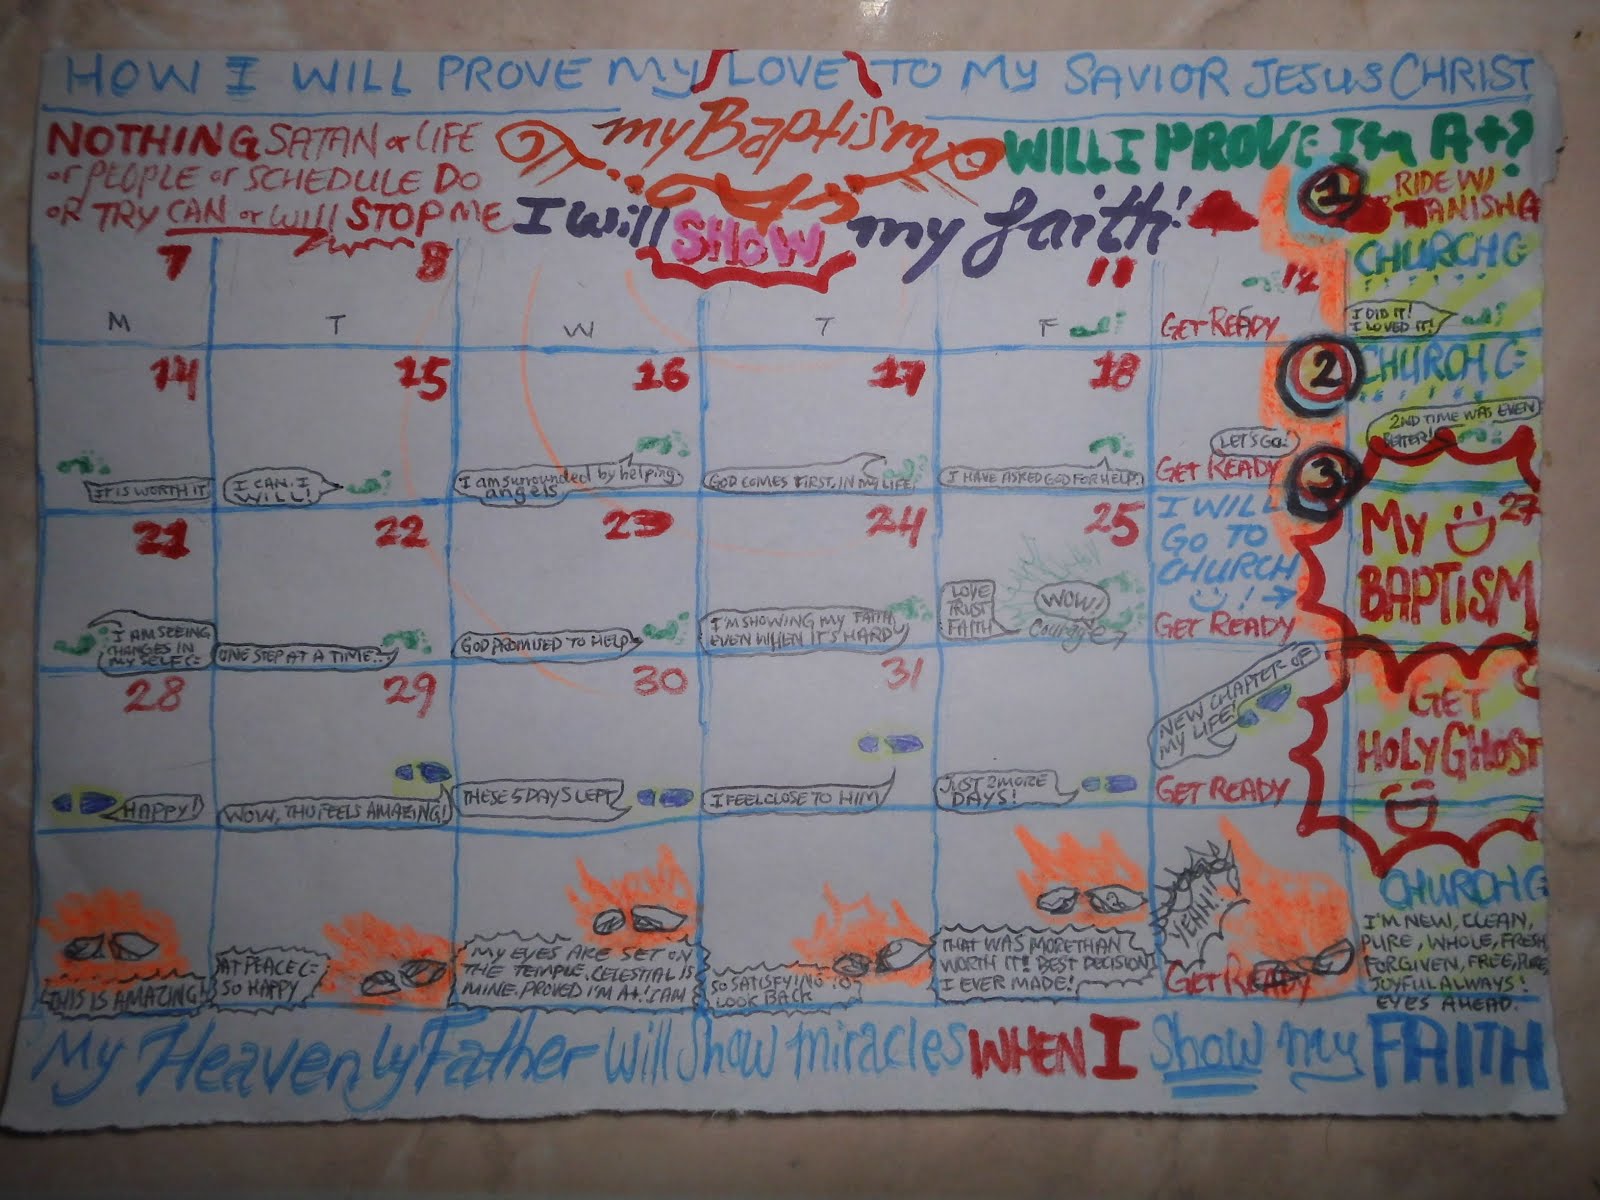 HOW I WILL PROVE my LOVE TO MY SAVIOR JESUS CHRIST
NOTHING SATAN or LIFE
or PEOPLE or SCHEDULE DO
OR TRY CAN or WILL STOP ME
my Baptism
I will SHOW my faith!
WILL I PROVE I'm A+?
1
RIDE W/
TANISHA
7
8
11
12
M
T
W
T
F
GET READY
CHURCH C=
I DID IT!
I LOVED IT!
14
15
16
17
18
2
CHURCH C=
IT IS WORTH IT
I CAN. I
WILL!
I am surrounded by helping
angels
GOD COMES FIRST, IN MY LIFE
I HAVE ASKED GOD FOR HELP.
LET'S GO!
GET READY
2ND TIME WAS EVEN
BETTER!
21
22
23
24
25
3
I WILL
GO TO
CHURCH
! →
GET READY
MY 27
BAPTISM
I AM SEEING
CHANGES IN
MY SELF C=
ONE STEP AT A TIME...
GOD PROMISED TO HELP
I'M SHOWING MY FAITH
EVEN WHEN IT'S HARD
LOVE
TRUST
FAITH
WOW!
Courage
28
29
30
31
HAPPY!
WOW, THIS FEELS AMAZING!
THESE 5 DAYS LEFT
I FEEL CLOSE TO HIM
JUST 2 MORE
DAYS!
NEW CHAPTER OF
MY LIFE!
GET READY
GET
HOLY GHOST
THIS IS AMAZING!
AT PEACE C=
SO HAPPY
MY EYES ARE SET ON
THE TEMPLE. CELESTIAL IS
MINE. PROVED I'M A+! I AM
SO SATISFYING TO
LOOK BACK
THAT WAS MORE THAN
WORTH IT! BEST DECISION
I EVER MADE!
YEAH!!
GET READY
CHURCH C=
I'M NEW, CLEAN,
PURE, WHOLE, FRESH,
FORGIVEN, FREE, PURE,
JOYFUL ALWAYS!
EYES AHEAD.
My Heavenly Father will show miracles WHEN I show my FAITH